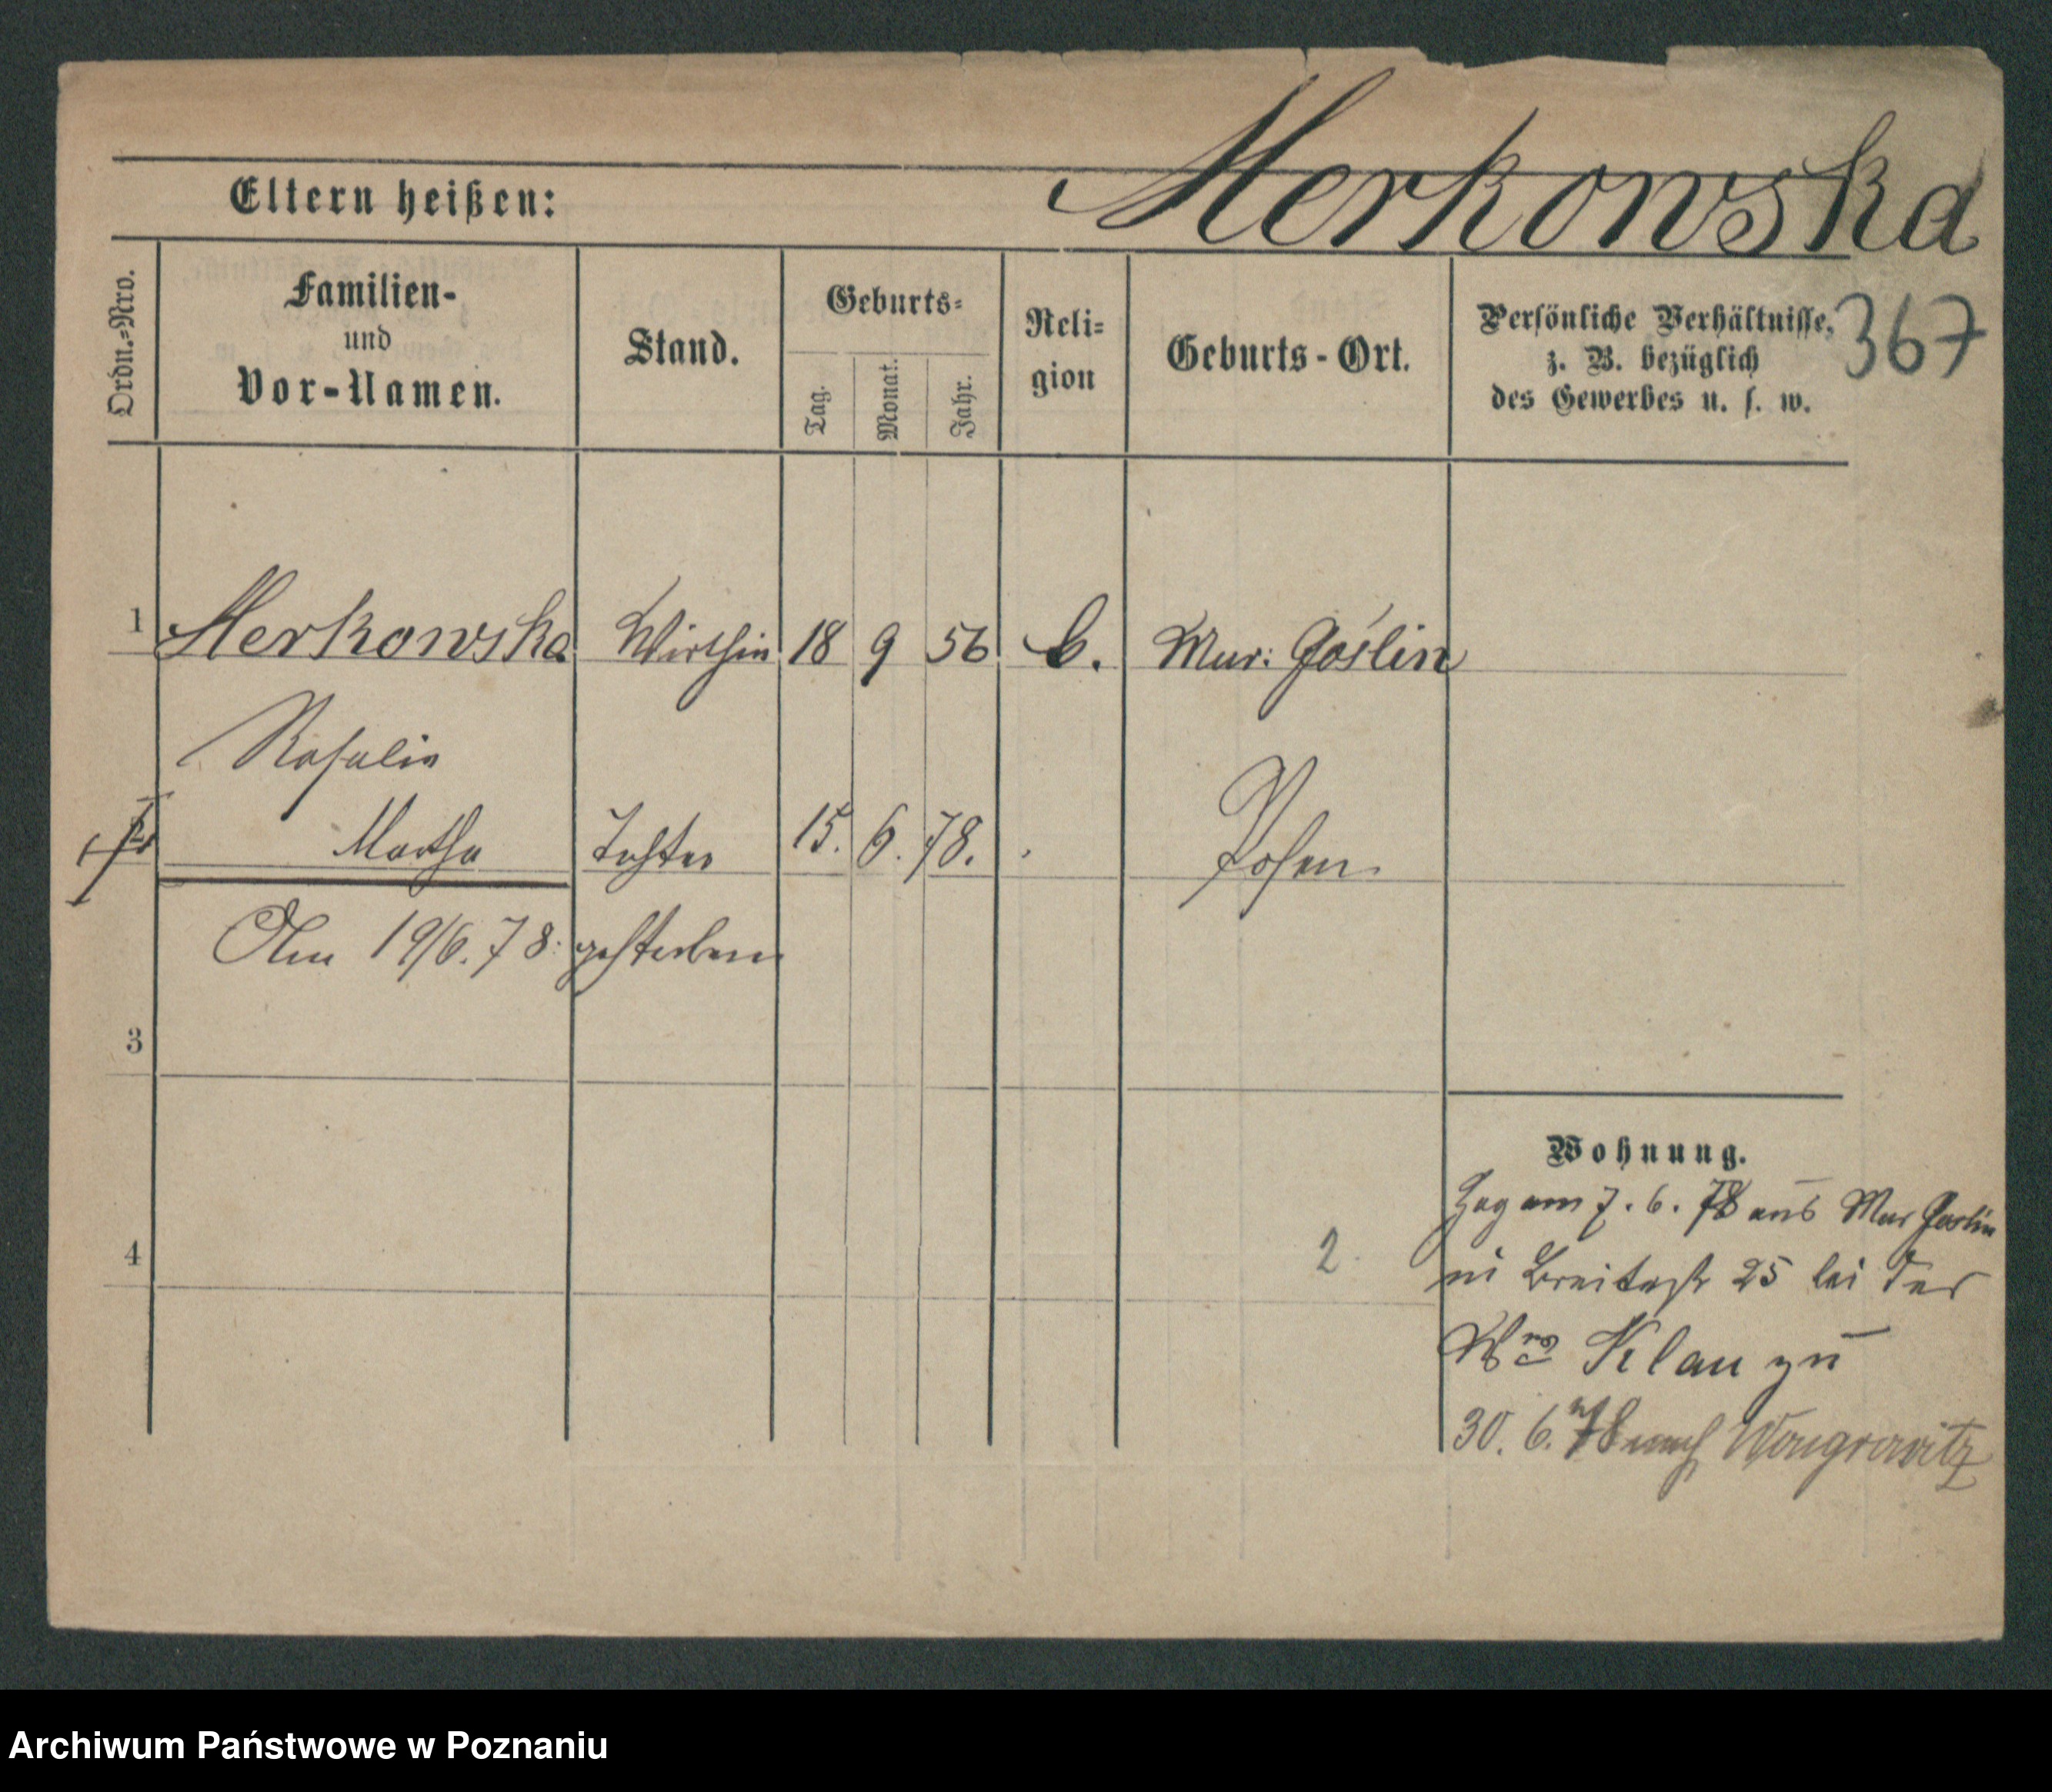 Merkowska
Eltern heißen:
Ordn.=Nro.
Familien-
und
Vor-Namen.
Stand.
Geburts=
Tag.
Monat.
Jahr.
Reli=
gion
Geburts-Ort.
Persönliche Verhältnisse,
z. B. bezüglich
des Gewerbes u. s. w.
367
1 Merkowska Wirthin 18 9 56 Mur: Goślin
Rosalie
Martha Tochter 15. 6. 78. Posen.
Am 19/6. 78. gestorben
3
Wohnung.
Zog am 7. 6. 78 aus Mur Goslin
in Breitestr 25 bei der
4 2
Klau zu
30. 6. 78 nach Wongrowitz
Archiwum Państwowe w Poznaniu